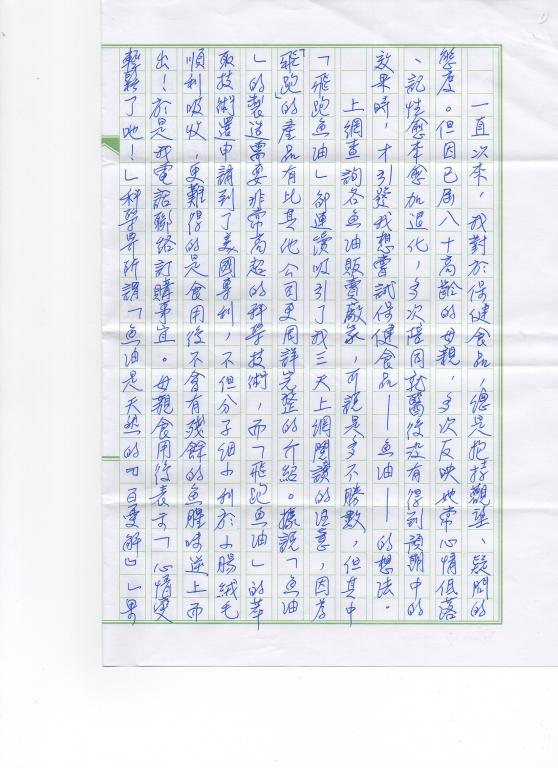 一直以來，我對於保健食品，總是抱持觀望、疑問的
態度。但因已屆八十高齡的母親，多次反映她常心情低落
、記性愈來愈加退化，多次陪同就醫後沒有得到預期中的
效果時，才引發我想嘗試保健食品——魚油——的想法。
上網查詢各魚油販賣廠家，可說是多不勝數，但其中
「飛跑魚油」卻連續吸引了我三天上網閱讀的注意，因為
「飛跑」的產品有比其他公司更周詳完整的介紹。據說「魚油
」的製造需要非常高超的科學技術，而「飛跑魚油」的萃
取技術還申請到了美國專利，不但分子細小利於小腸絨毛
順利吸收，更難得的是食用後不會有殘餘的魚腥味逆上而
出！於是我電話聯絡訂購事宜。母親食用後表示「心情變
輕鬆了吔！」科學界所謂「魚油是天然的『百憂解』」果